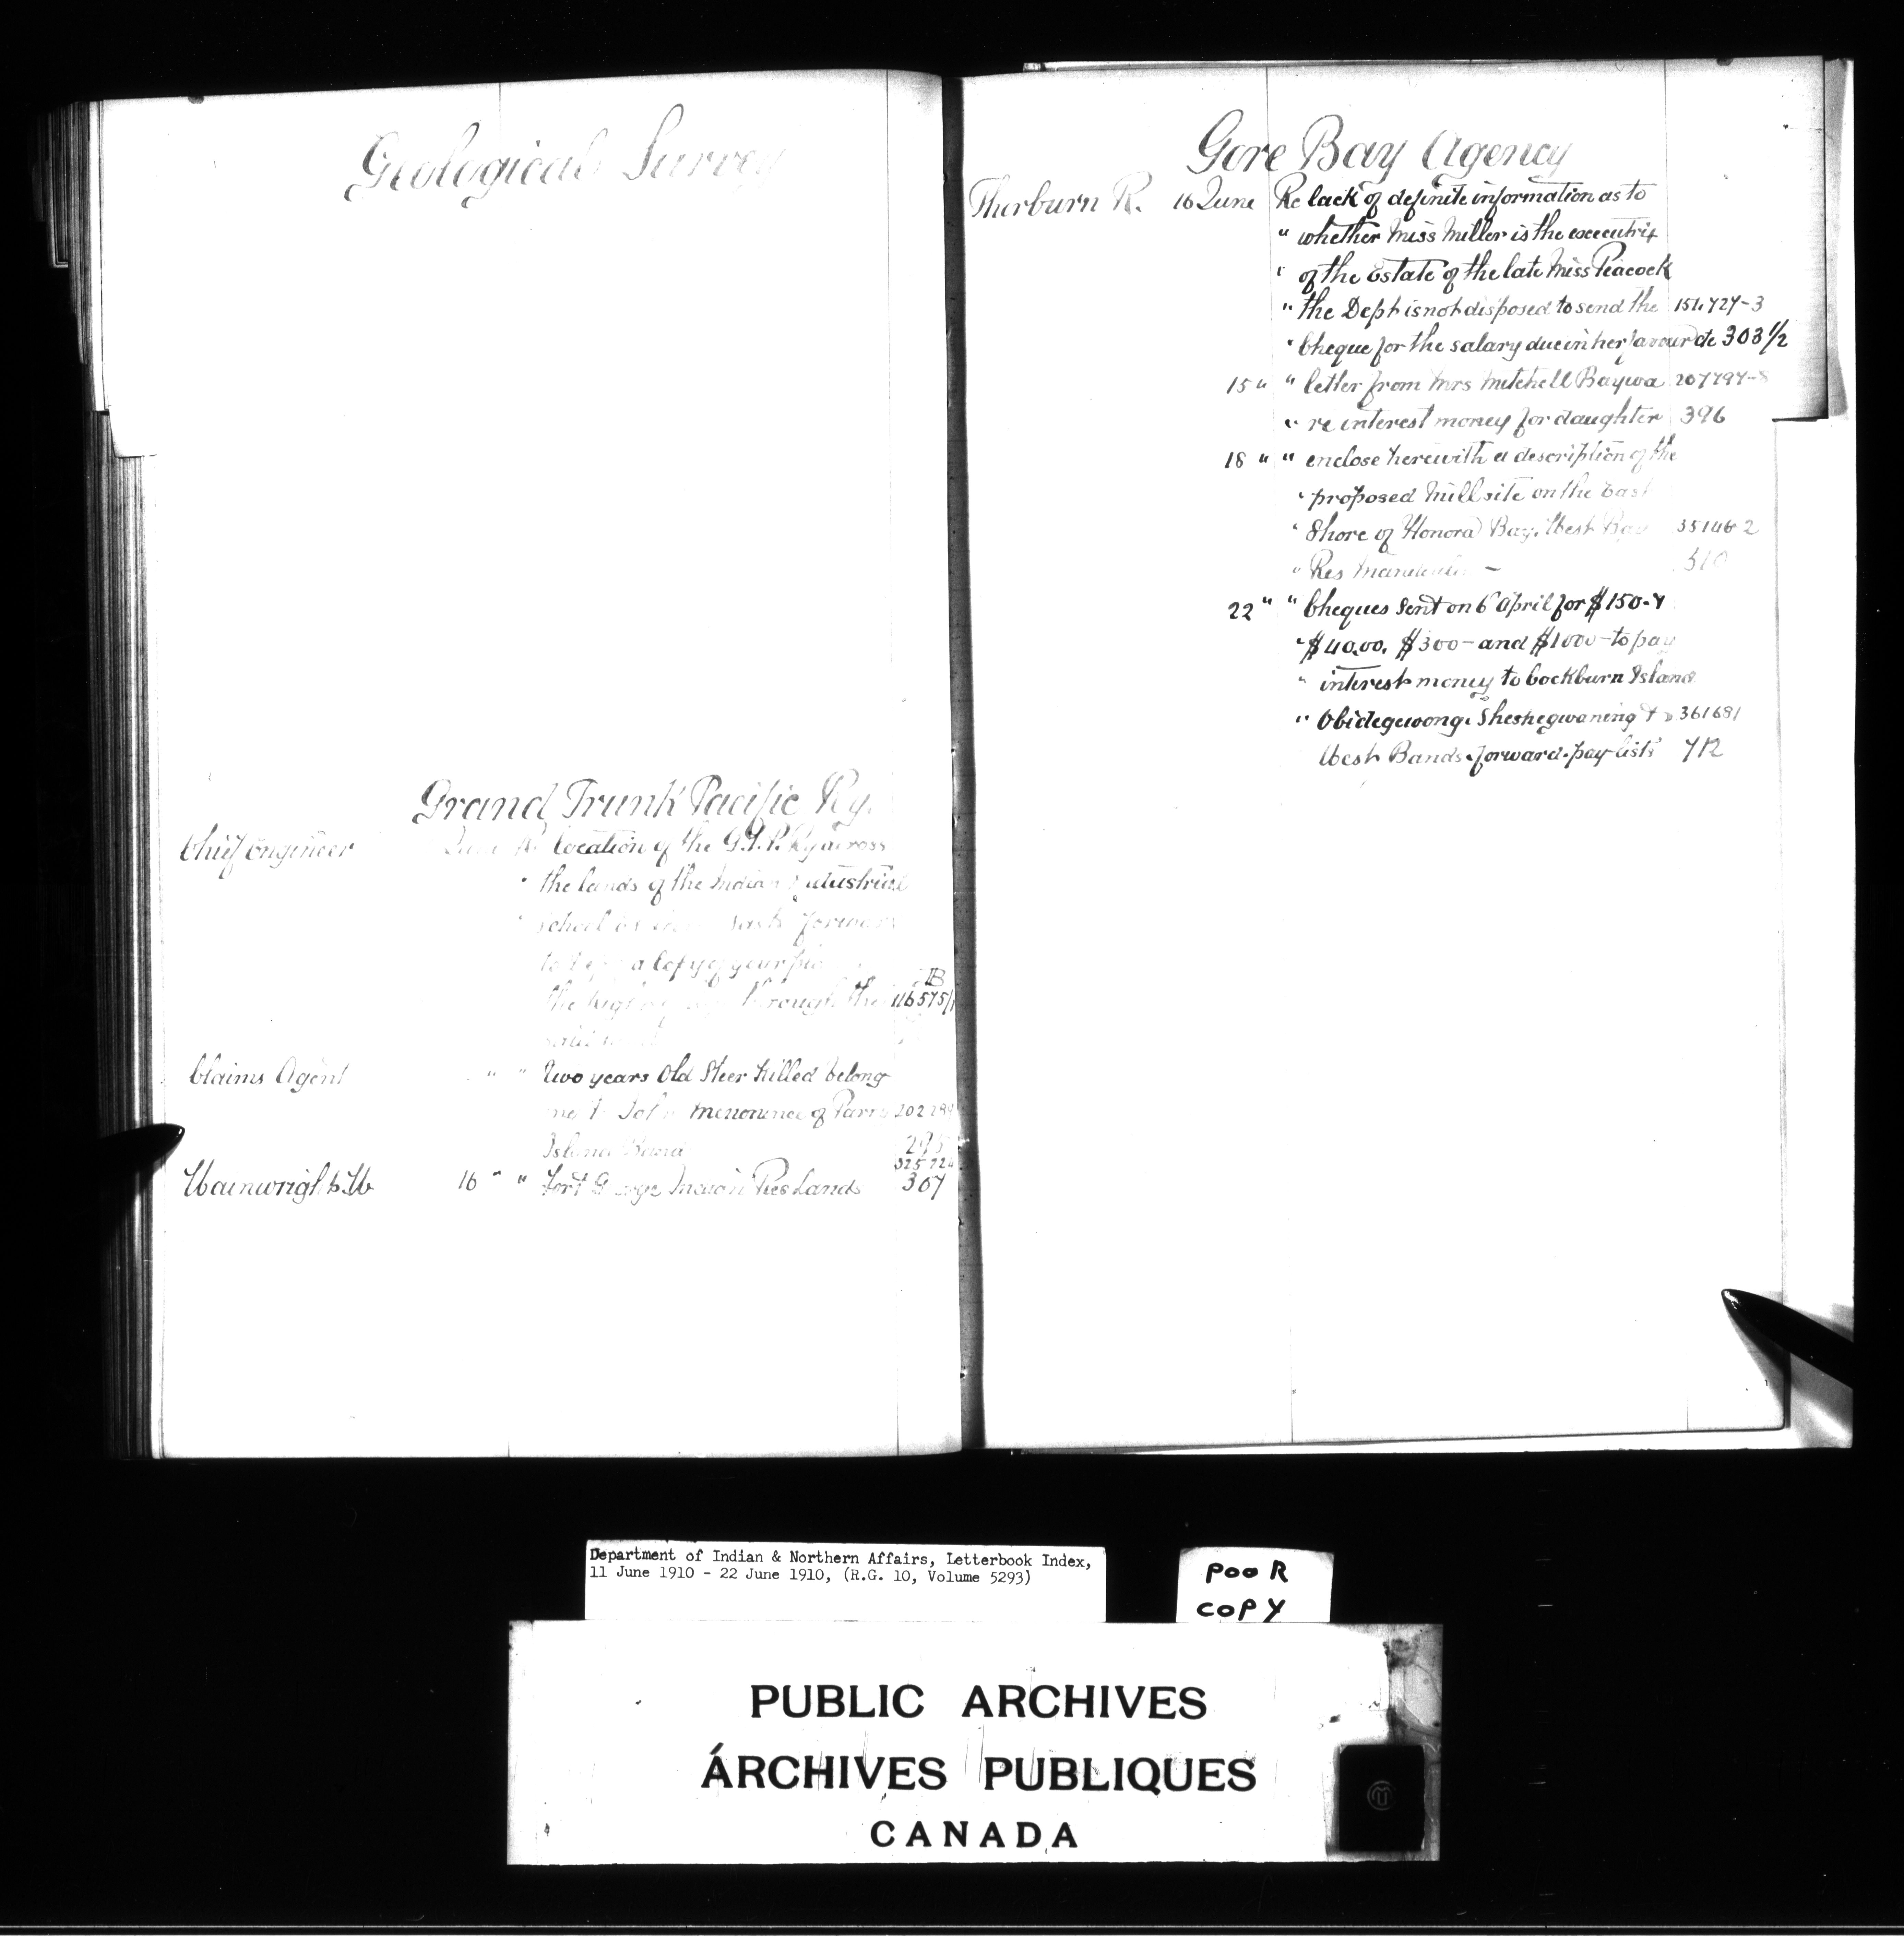 Geological Survey
Grand Trunk Pacific Ry.
Chief Engineer June Re location of the G.T.P. Ry across
" the lands of the Indian Industrial
school Sask forward
a copy of your
the through the 116575/1 1B
Claims Agent " " Two years old Steer killed belong
Menominee of Parry 202
Island Band 295
325724
Wainwright W. 16 " " Fort George Indian Res Lands 307
Gore Bay Agency
Thorburn R. 16 June Re lack of definite information as to
" whether Miss Miller is the executrix
" of the Estate of the late Miss Peacock
" the Dept is not disposed to send the 151.727-3
" Cheque for the salary due in her favour etc 303 1/2
15 " " letter from Mrs Mitchell Baywa 207797-8
" re interest money for daughter 396
18 " " enclose herewith a description of the
" proposed Mill site on the East
" Shore of Honora Bay, West Bay 35146-2
" Res 510
22 " " Cheques sent on 6 April for $150.
" $40.00. $300- and $1000- to pay
" interest money to Cockburn Island
" Obidgewong. Sheshegwaning & 361681
West Bands. forward. pay lists 712
Department of Indian & Northern Affairs, Letterbook Index,
11 June 1910 - 22 June 1910, (R.G. 10, Volume 5293)
POOR
COPY
PUBLIC ARCHIVES
ARCHIVES PUBLIQUES
CANADA